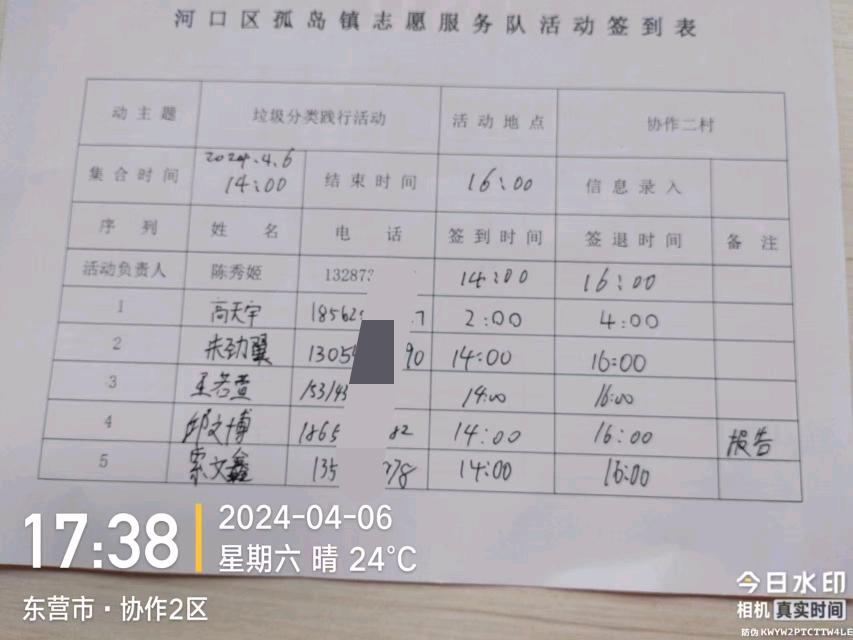 河口区孤岛镇志愿服务队活动签到表
动主题 垃圾分类践行活动 活动地点 协作二村
集合时间 2024.4.6 14:00 结束时间 16:00 信息录入
序列 姓名 电话 签到时间 签退时间 备注
活动负责人 陈秀姬 13287 14:00 16:00
1 高天宇 1856 7 2:00 4:00
2 朱劲翼 1305 90 14:00 16:00
3 王若萱 153143 14:00 16:00
4 邱文博 1865 82 14:00 16:00 报告
5 索文鑫 135 778 14:00 16:00
17:38 2024-04-06
星期六 晴 24°C
东营市·协作2区
今日水印
相机 真实时间
防伪 KWYW2PTCTTW4LE